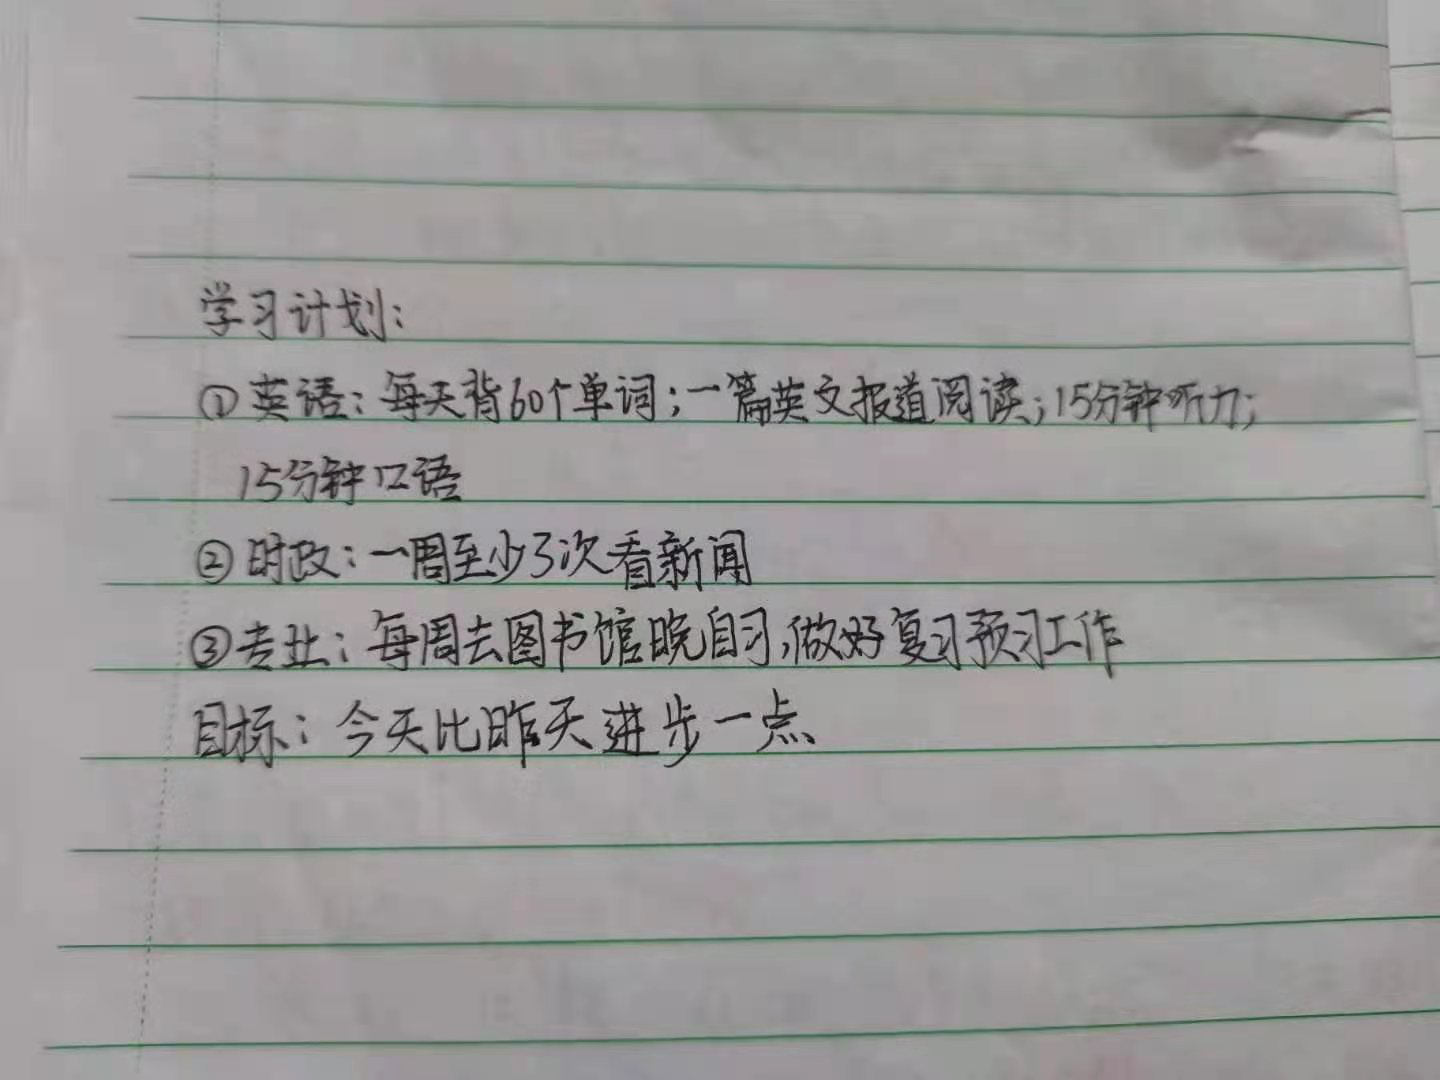 学习计划：
①英语：每天背60个单词；一篇英文报道阅读；15分钟听力；
15分钟口语
②时政：一周至少3次看新闻
③专业：每周去图书馆晚自习，做好复习预习工作
目标：今天比昨天进步一点